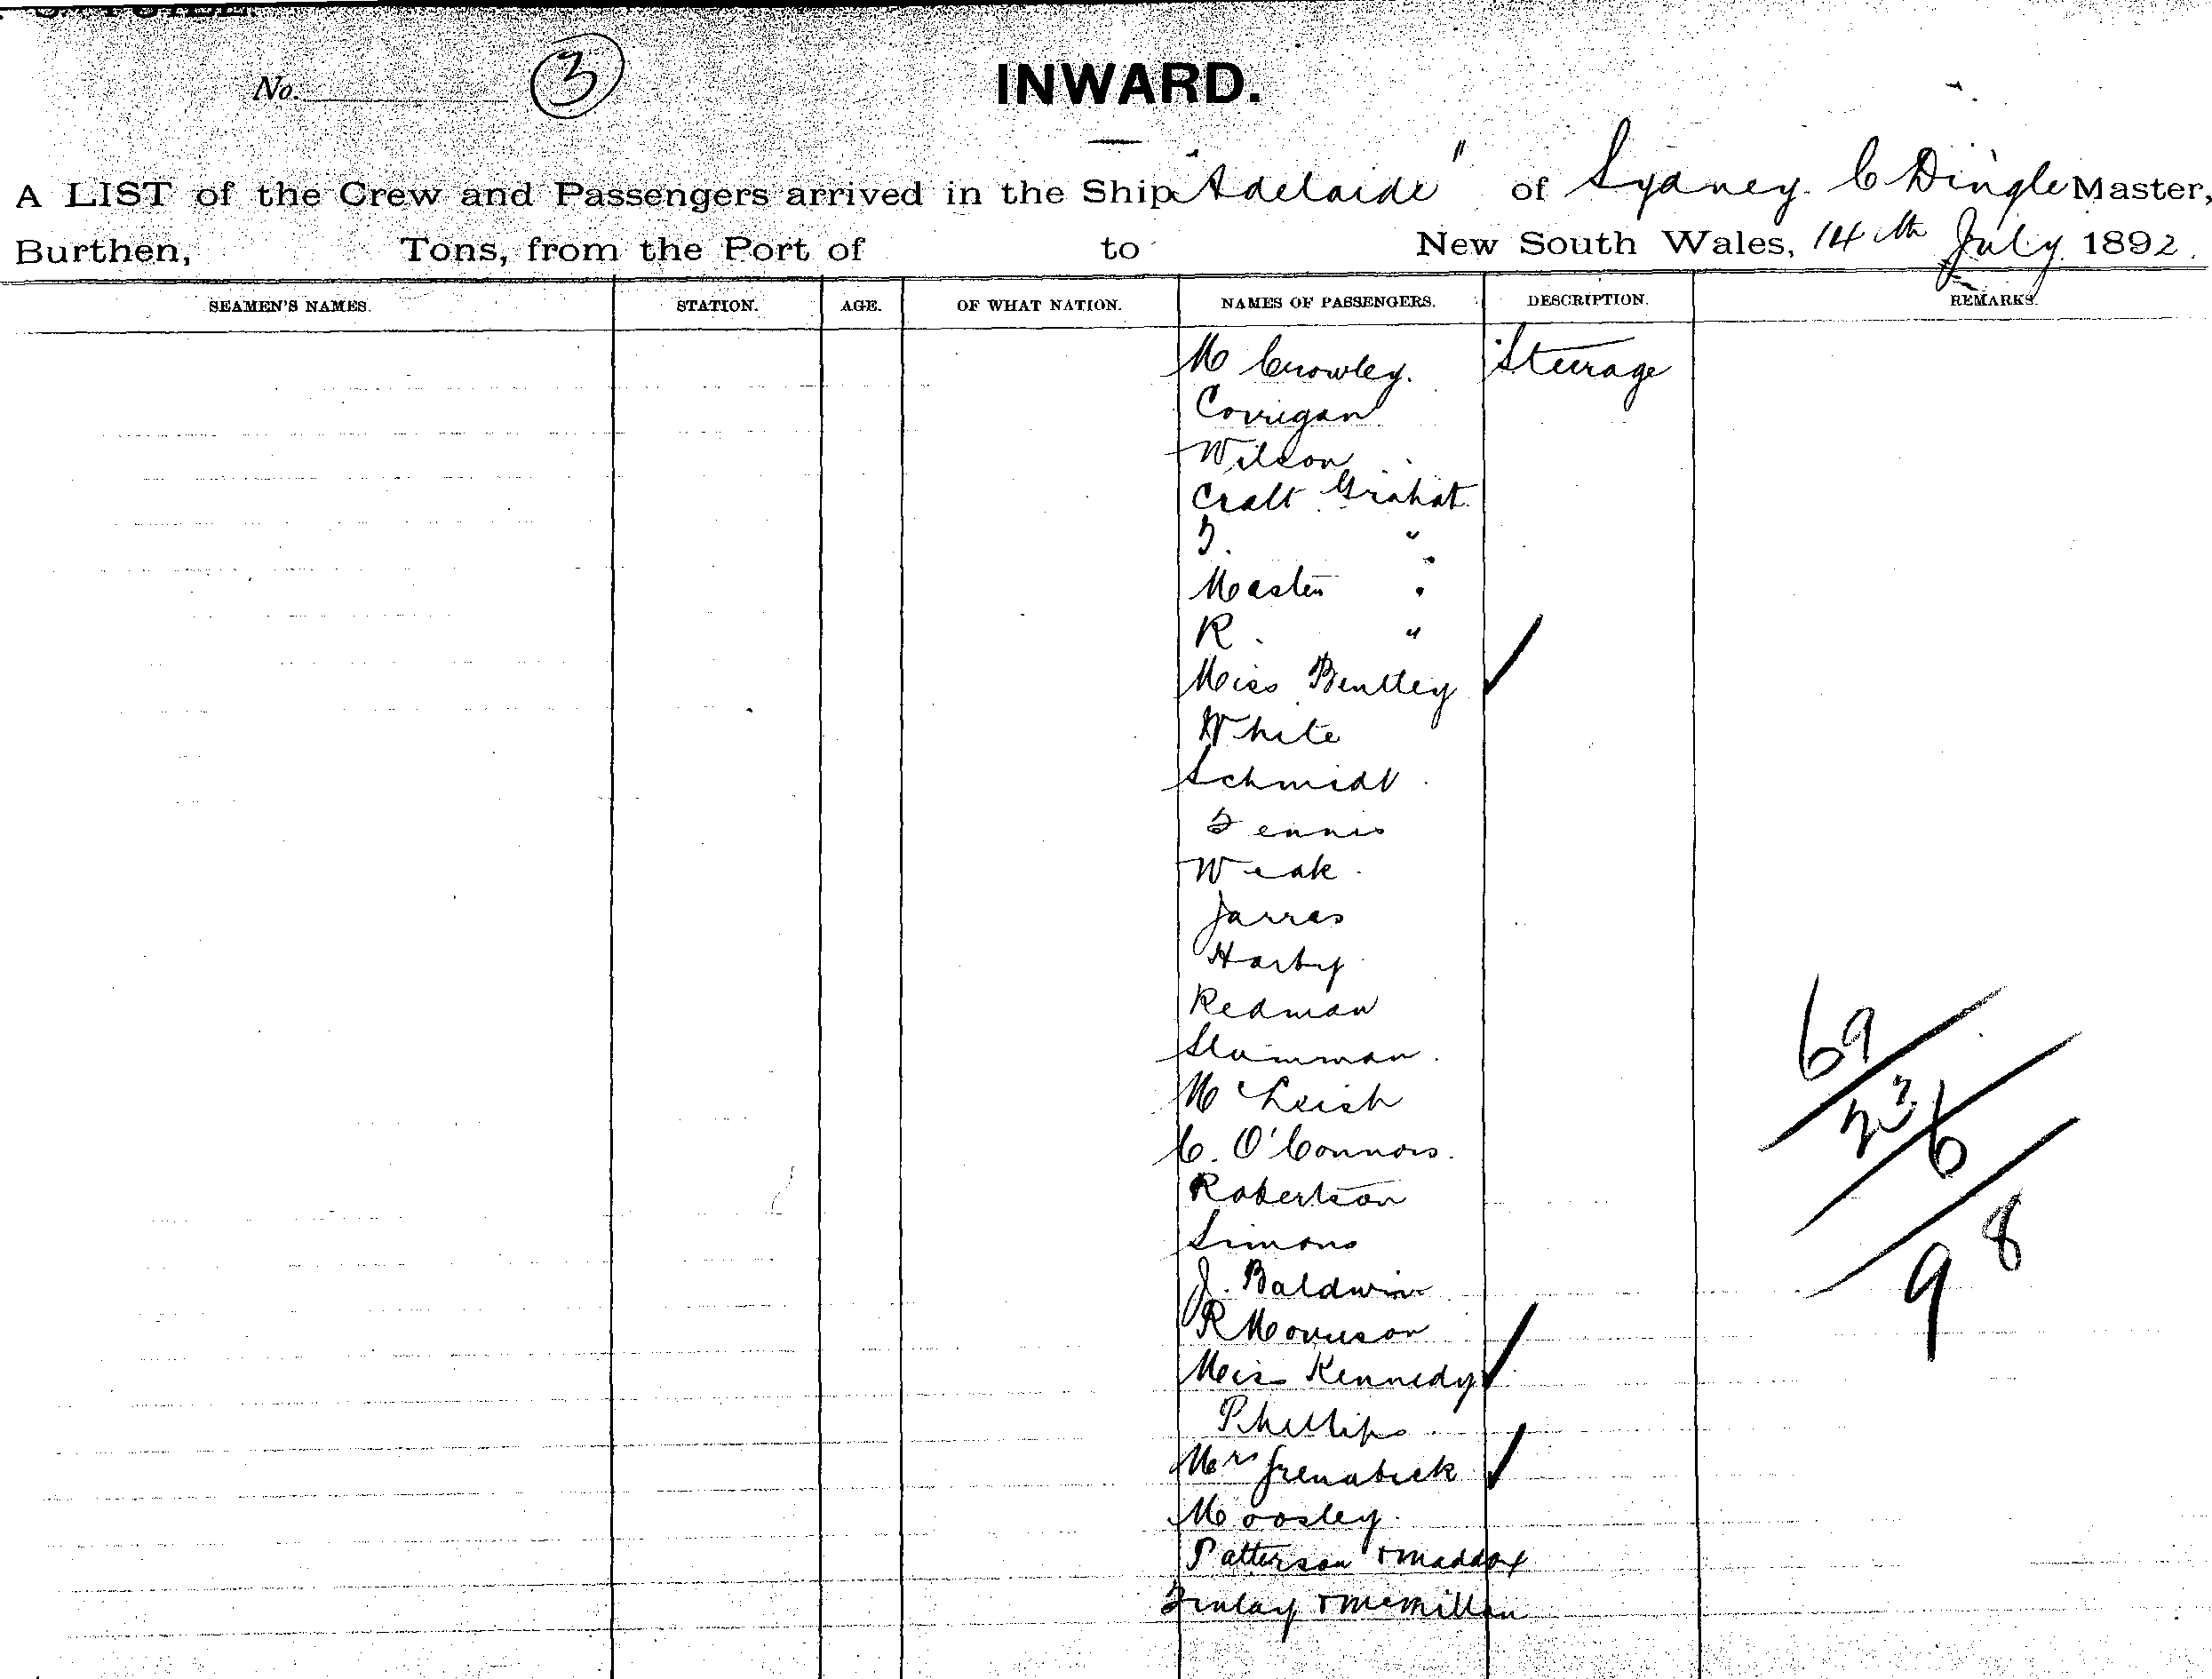 No. 3
INWARD.
A LIST of the Crew and Passengers arrived in the Ship "Adelaide" of Sydney. C Dingle Master,
Burthen, Tons, from the Port of to New South Wales, 14th July 1892.
SEAMEN'S NAMES. STATION. AGE. OF WHAT NATION. NAMES OF PASSENGERS. DESCRIPTION. REMARKS.
M Crowley. Steerage
Corrigan
Wilson
"
Master "
R. "
Miss Bentley ✓
White
Schmidt
Weak
Harby
Redman
M
C. O'Connors.
Robertson
Simons
J. Baldwin
R Morrison
Miss Kennedy ✓
Phillips
Mrs ✓
Moosley.
Patterson + Maddox
Finlay + McMillan
69
236
98